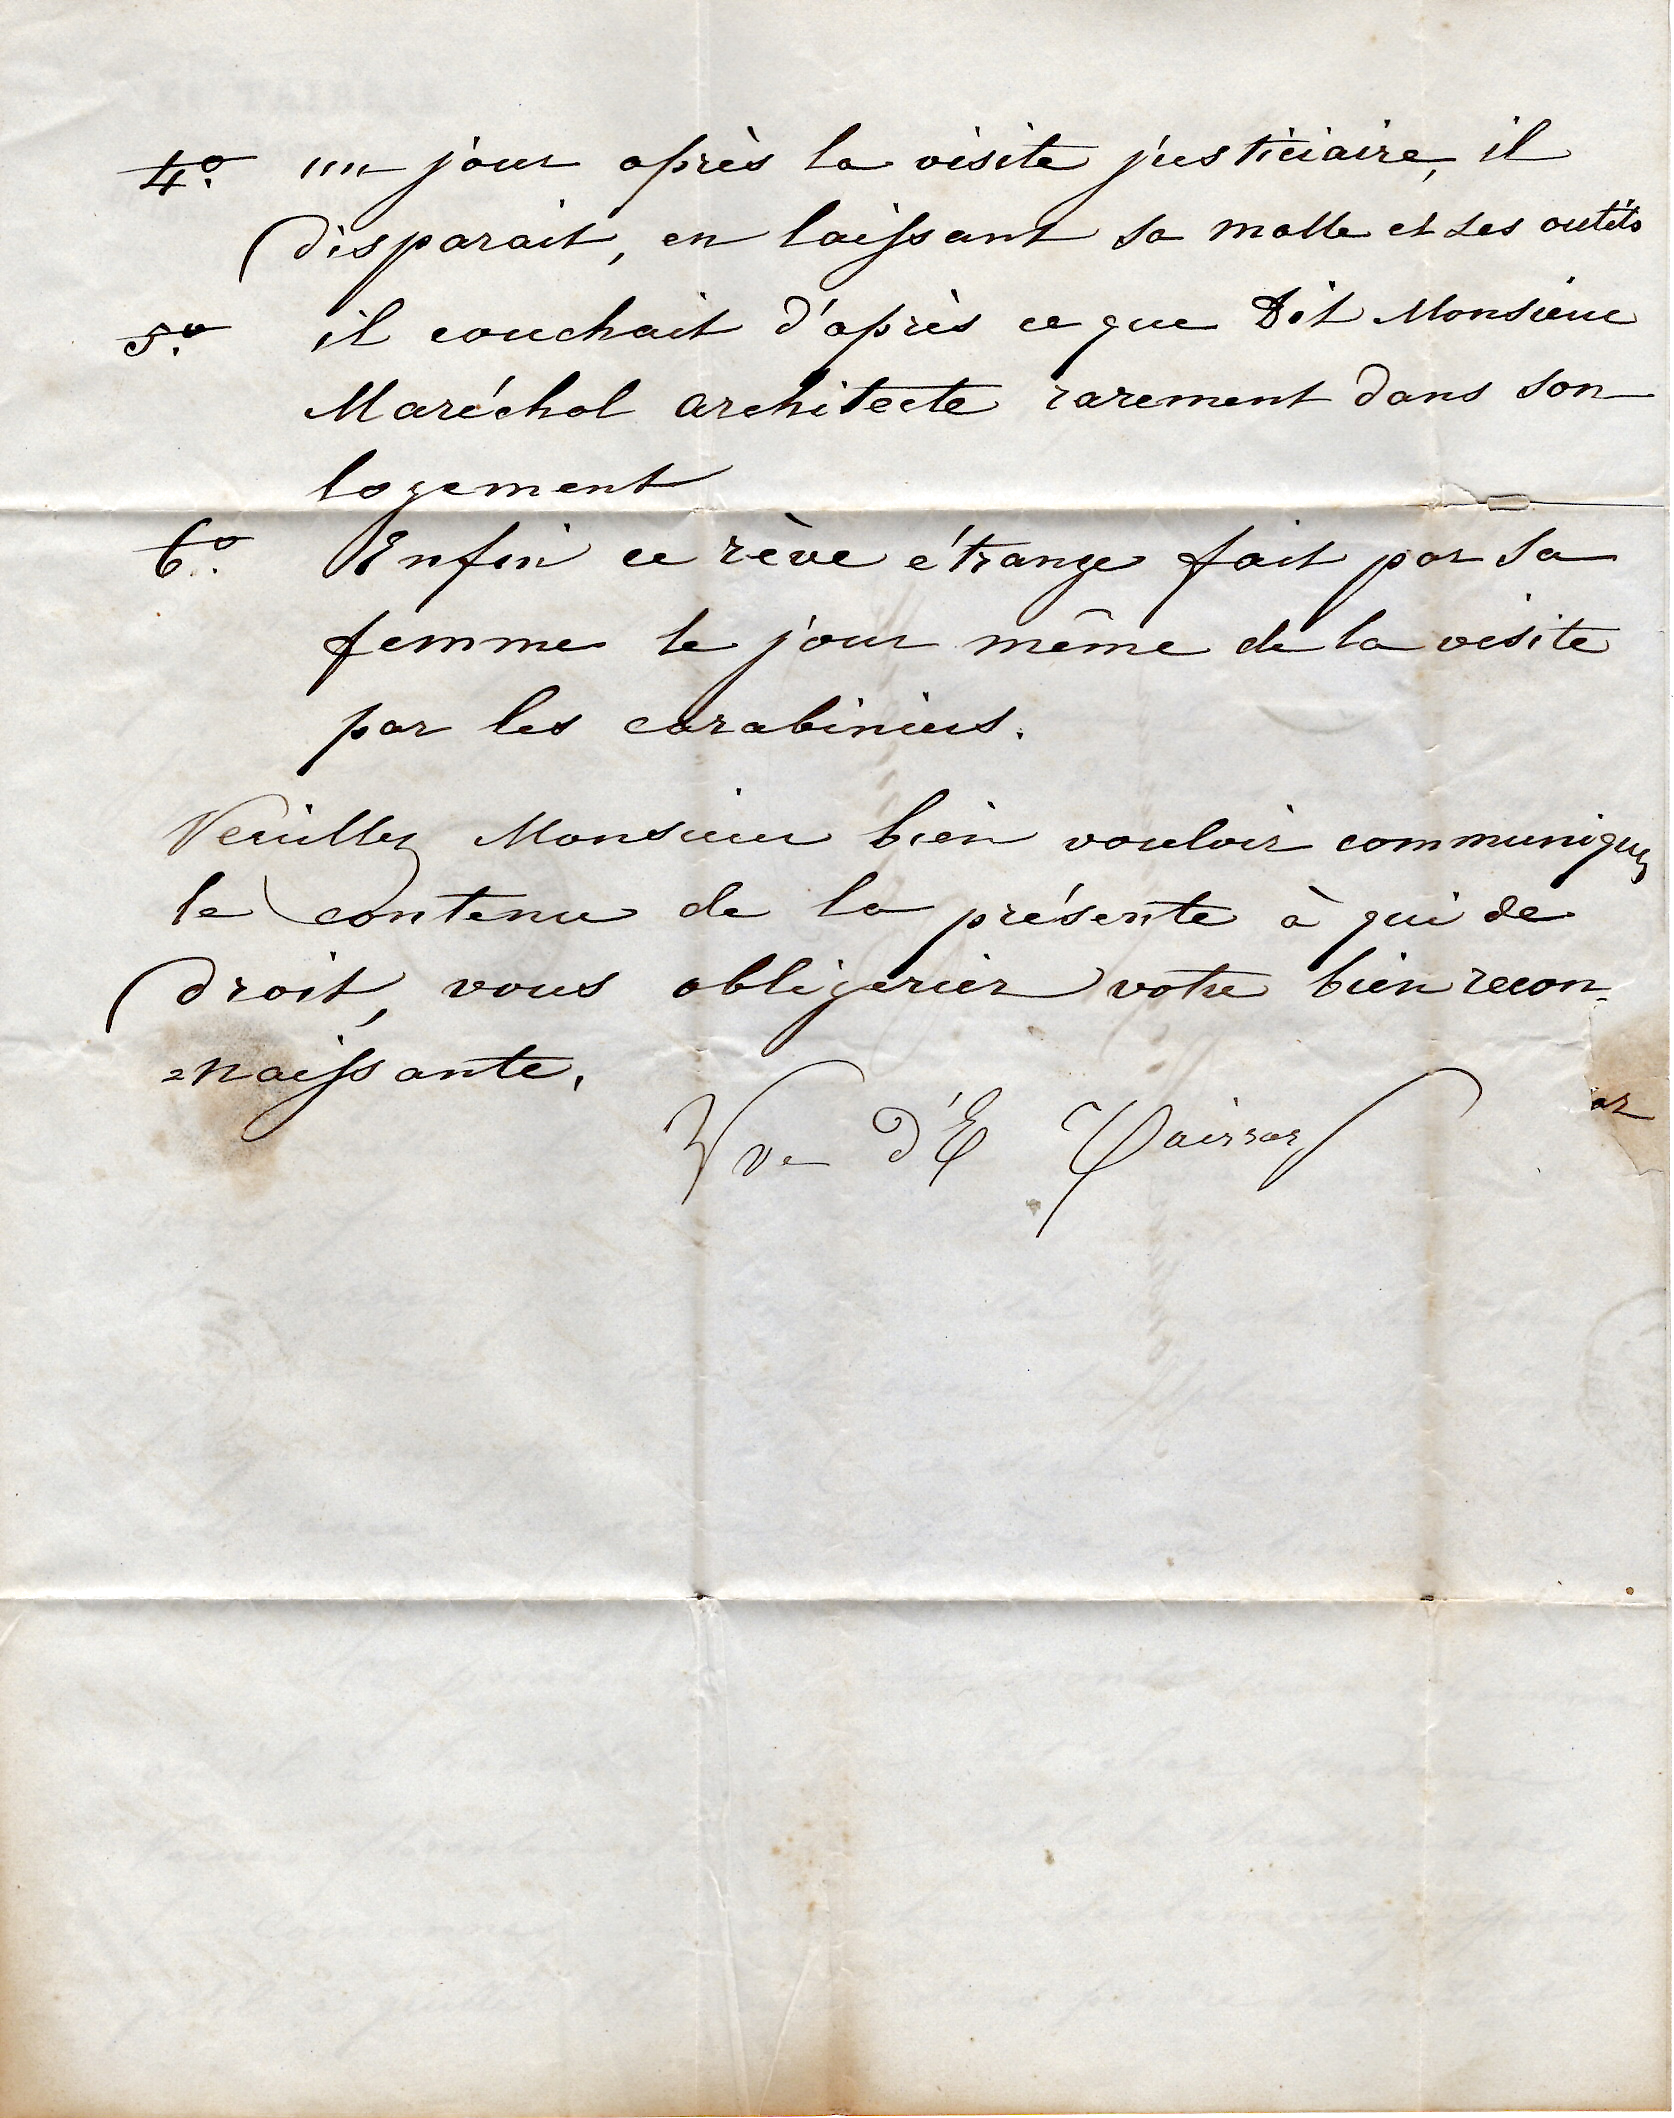 4o. un jour après la visite justiciaire, il
disparait, en laissant sa malle et ses outils
5o. il couchait d'après ce que Dit Monsieur
Maréchal architecte rarement dans son
logement
6o. Enfin ce rêve étrange fait par sa
femme le jour même de la visite
par les carabiniers.
Veuillez Monsieur bien vouloir communiquer
le contenu de la présente à qui de
droit, vous obligerier votre bien recon-
=naissante.
Vve d'E